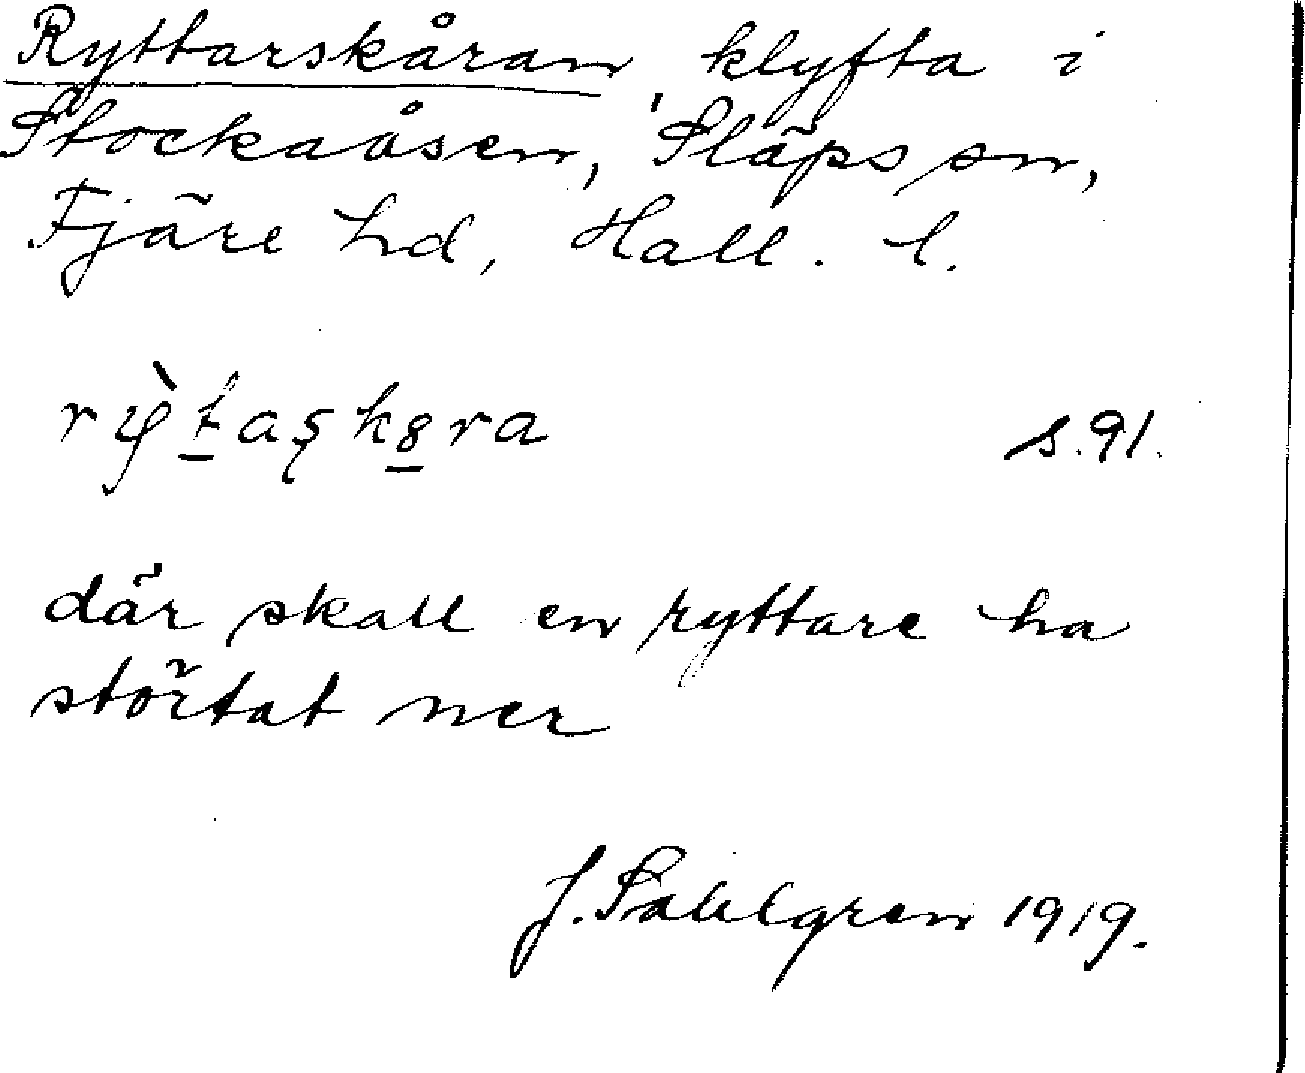 Ryttarskåran, klyfta i
Stockaåsen, Släps sn,
Fjäre hd, Hall. l.
rỳt̲aşk8̲ra s. 91.
där skall en ryttare ha
störtat ner
J. Sahlgren 1919.